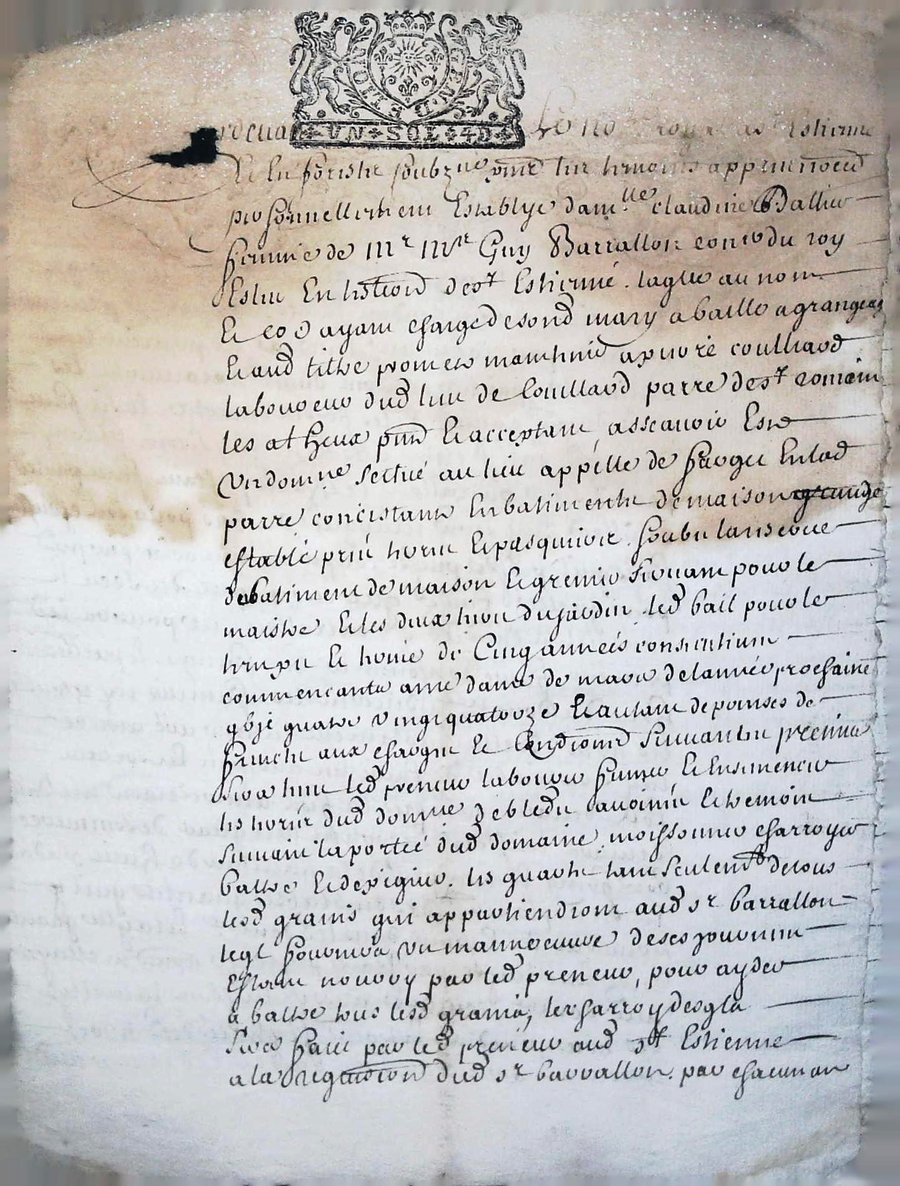 GEN. DE LION
UN SOL 4D
Pardevant Le no.re royal de St Estienne
Et En forestz soubzne present les tesmoings apres nommes
personnellement Establye dam.lle claudine
femme de Mr Mre Guy Barrallon con.er du roy
Eslu En lestiond de st Estienne. laqlle au nom
Et ayant charge de sond mary a baille a grangeage
Et aud tiltre promets maintenir a pierre coulliard
laboureur dud lieu de Couillard parre de st romain
les atheux pnt Et acceptant, asscavoir Est
Un domne scitué au lieu appellé de Enlad
parre concistant En batiments de maison grange
estable pré terre Et pasquier soubz la reserve
de batiment de maison Et grenier pour le
maistre Et les deux tiers du jardin led bail pour le
temps Et terme de Cinq années
commencants a nre dame de mars de lannée prochaine
gbje quatre vingt quatorze Et autant de prinses de
aux charges Et Conditions suivantes premier
sera tenu led preneur labourer fumer Et Ensemencer
les terres dud domne de bled avoine Et tremois
suivant la portée dud domaine, moissonner charroyer
battre Et les quatre tant seulemt de tous
lesd grains qui appartiendront aud sr barrallon
leql fournira un manoeuvre de ses journées
Estant nourry par led preneur, pour ayder
a battre tous lesd grains, le charroy desqls
sera fait par led preneur aud st Estienne
a la requisition dud sr barrallon. par chacun an